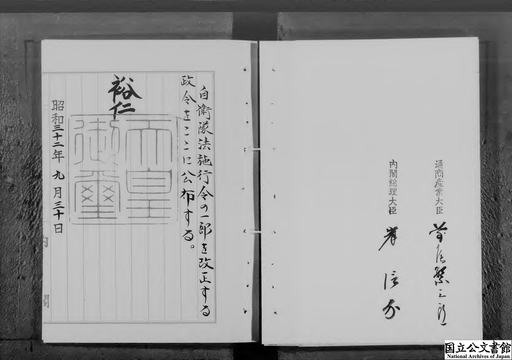 自衛隊法施行令の一部を改正する
政令をここに公布する。
裕仁
天皇
御璽
昭和三十二年九月三十日
内閣
通商産業大臣
前尾繁三郎
内閣総理大臣
岸信介
国立公文書館
National Archives of Japan